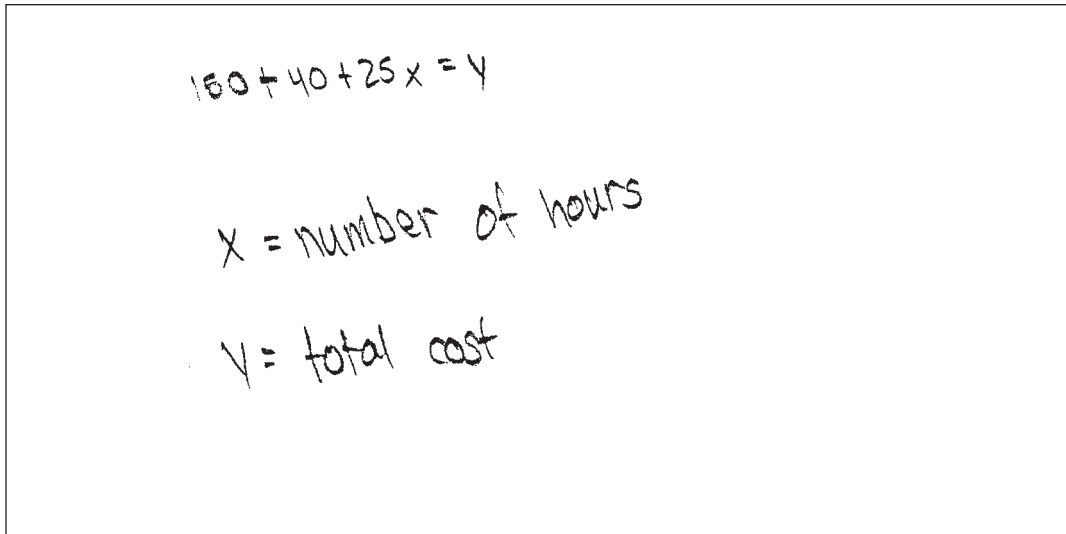 150+40+25x=y
x = number of hours
y = total cost